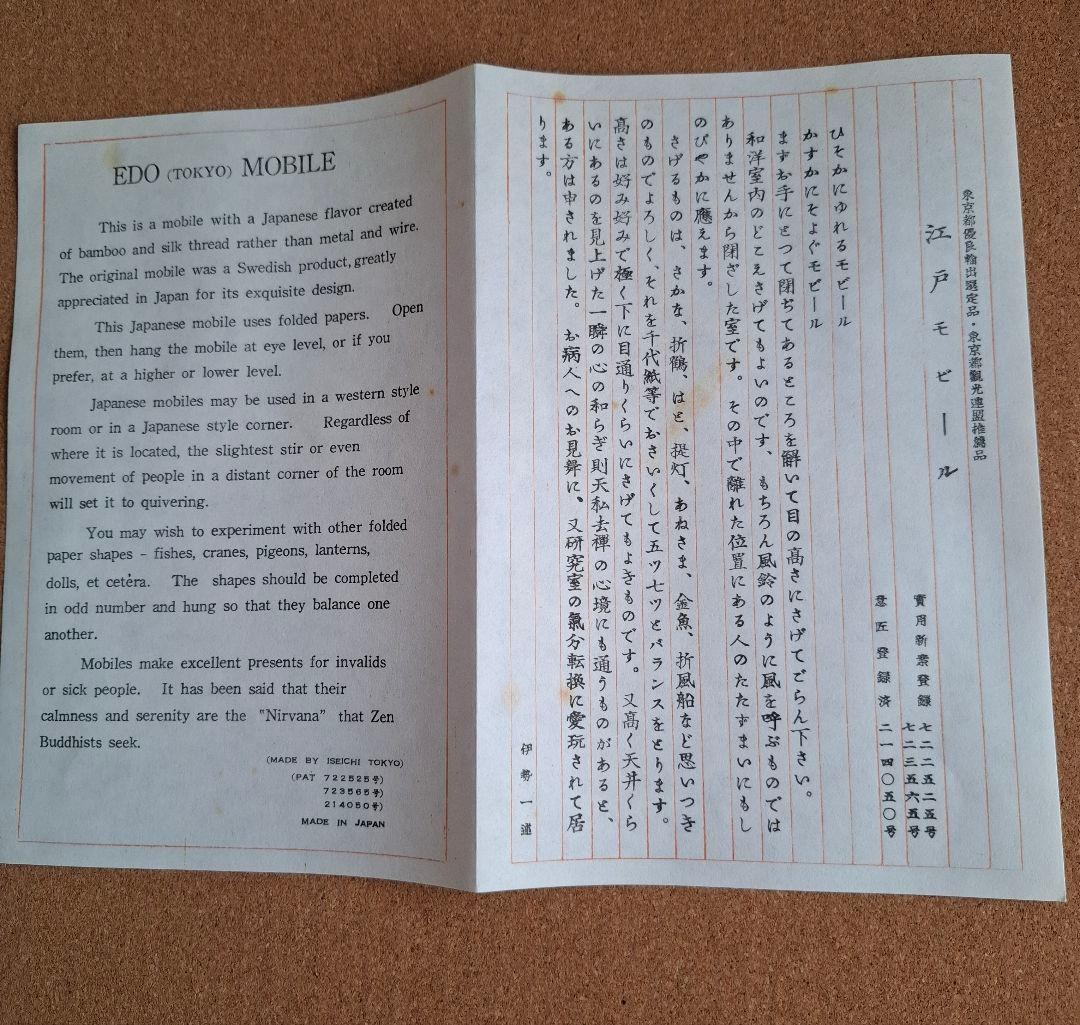 EDO (TOKYO) MOBILE
This is a mobile with a Japanese flavor created
of bamboo and silk thread rather than metal and wire.
The original mobile was a Swedish product, greatly
appreciated in Japan for its exquisite design.
This Japanese mobile uses folded papers. Open
them, then hang the mobile at eye level, or if you
prefer, at a higher or lower level.
Japanese mobiles may be used in a western style
room or in a Japanese style corner. Regardless of
where it is located, the slightest stir or even
movement of people in a distant corner of the room
will set it to quivering.
You may wish to experiment with other folded
paper shapes - fishes, cranes, pigeons, lanterns,
dolls, et cetera. The shapes should be completed
in odd number and hung so that they balance one
another.
Mobiles make excellent presents for invalids
or sick people. It has been said that their
calmness and serenity are the "Nirvana" that Zen
Buddhists seek.
(MADE BY ISEICHI TOKYO)
(PAT 722525号)
723565号)
214050号)
MADE IN JAPAN
東京都優良輸出選定品・東京都観光連盟推薦品
江戸モビール
實用新案登録 七二二五二五号
七二三五六五号
意匠登録済 二一四〇五〇号
ひそかにゆれるモビール
かすかにそよぐモビール
まずお手にとつて閉ぢてあるところを解いて目の高さにさげてごらん下さい。
和洋室内のどこえさげてもよいのです、もちろん風鈴のように風を呼ぶものでは
ありませんから閉ざした室です。その中で離れた位置にある人のたたずまいにもし
のびやかに應えます。
さげるものは、さかな、折鶴、はと、提灯、あねさま、金魚、折風船など思いつき
のものでよろしく、それを千代紙等でおさいくして五ツ七ツとバランスをとります。
高さは好み好みで極く下に目通りくらいにさげてもよきものです。又高く天井くら
いにあるのを見上げた一瞬の心の和らぎ則天私去禅の心境にも通うものがあると、
ある方は申されました。お病人へのお見舞に、又研究室の氣分転換に愛玩されて居
ります。
伊勢一述